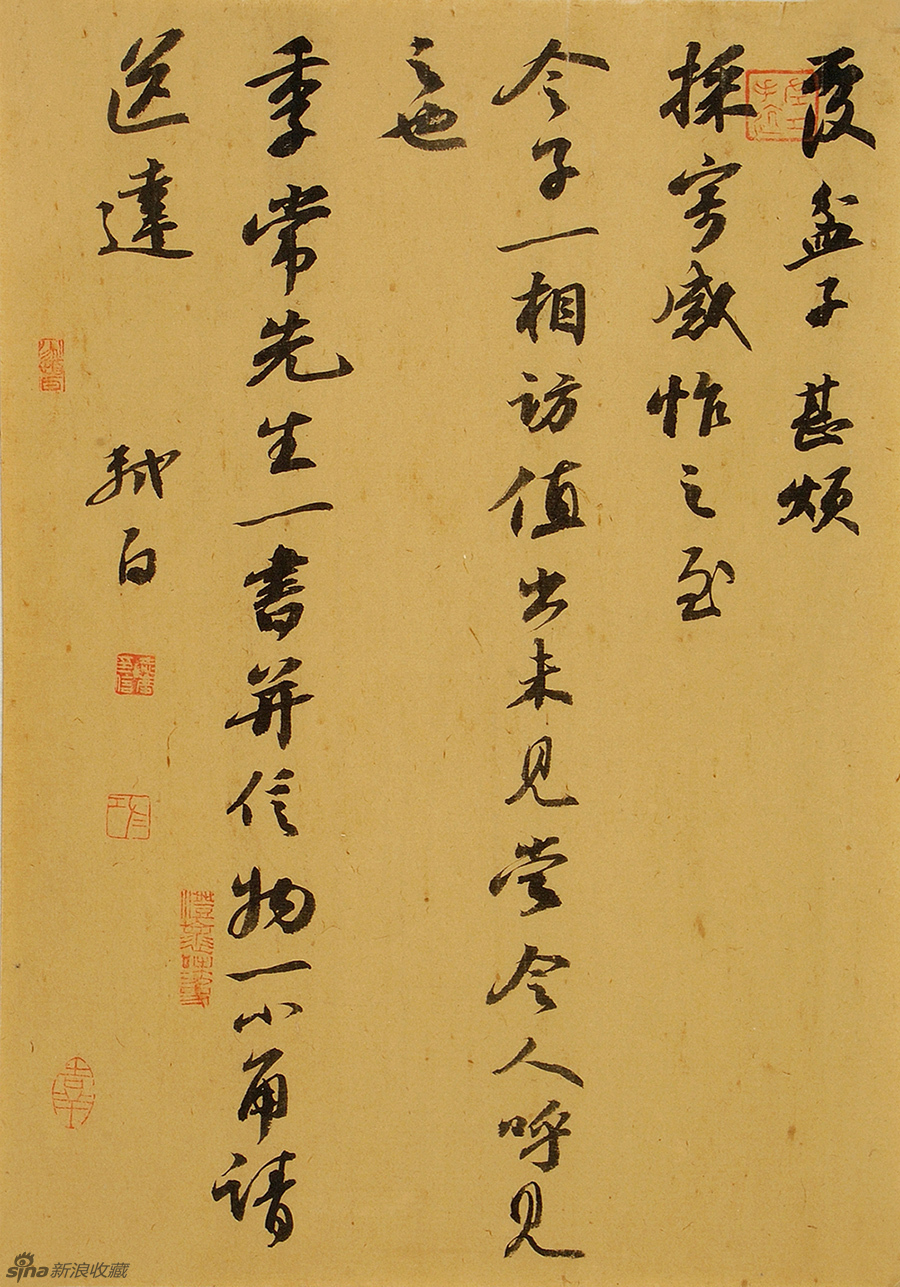 覆盆子甚煩
採寄感怍之至
令子一相訪值出未見當令人呼見
之也
季常先生一書并信物一小角請
送達
軾白
sina新浪收藏